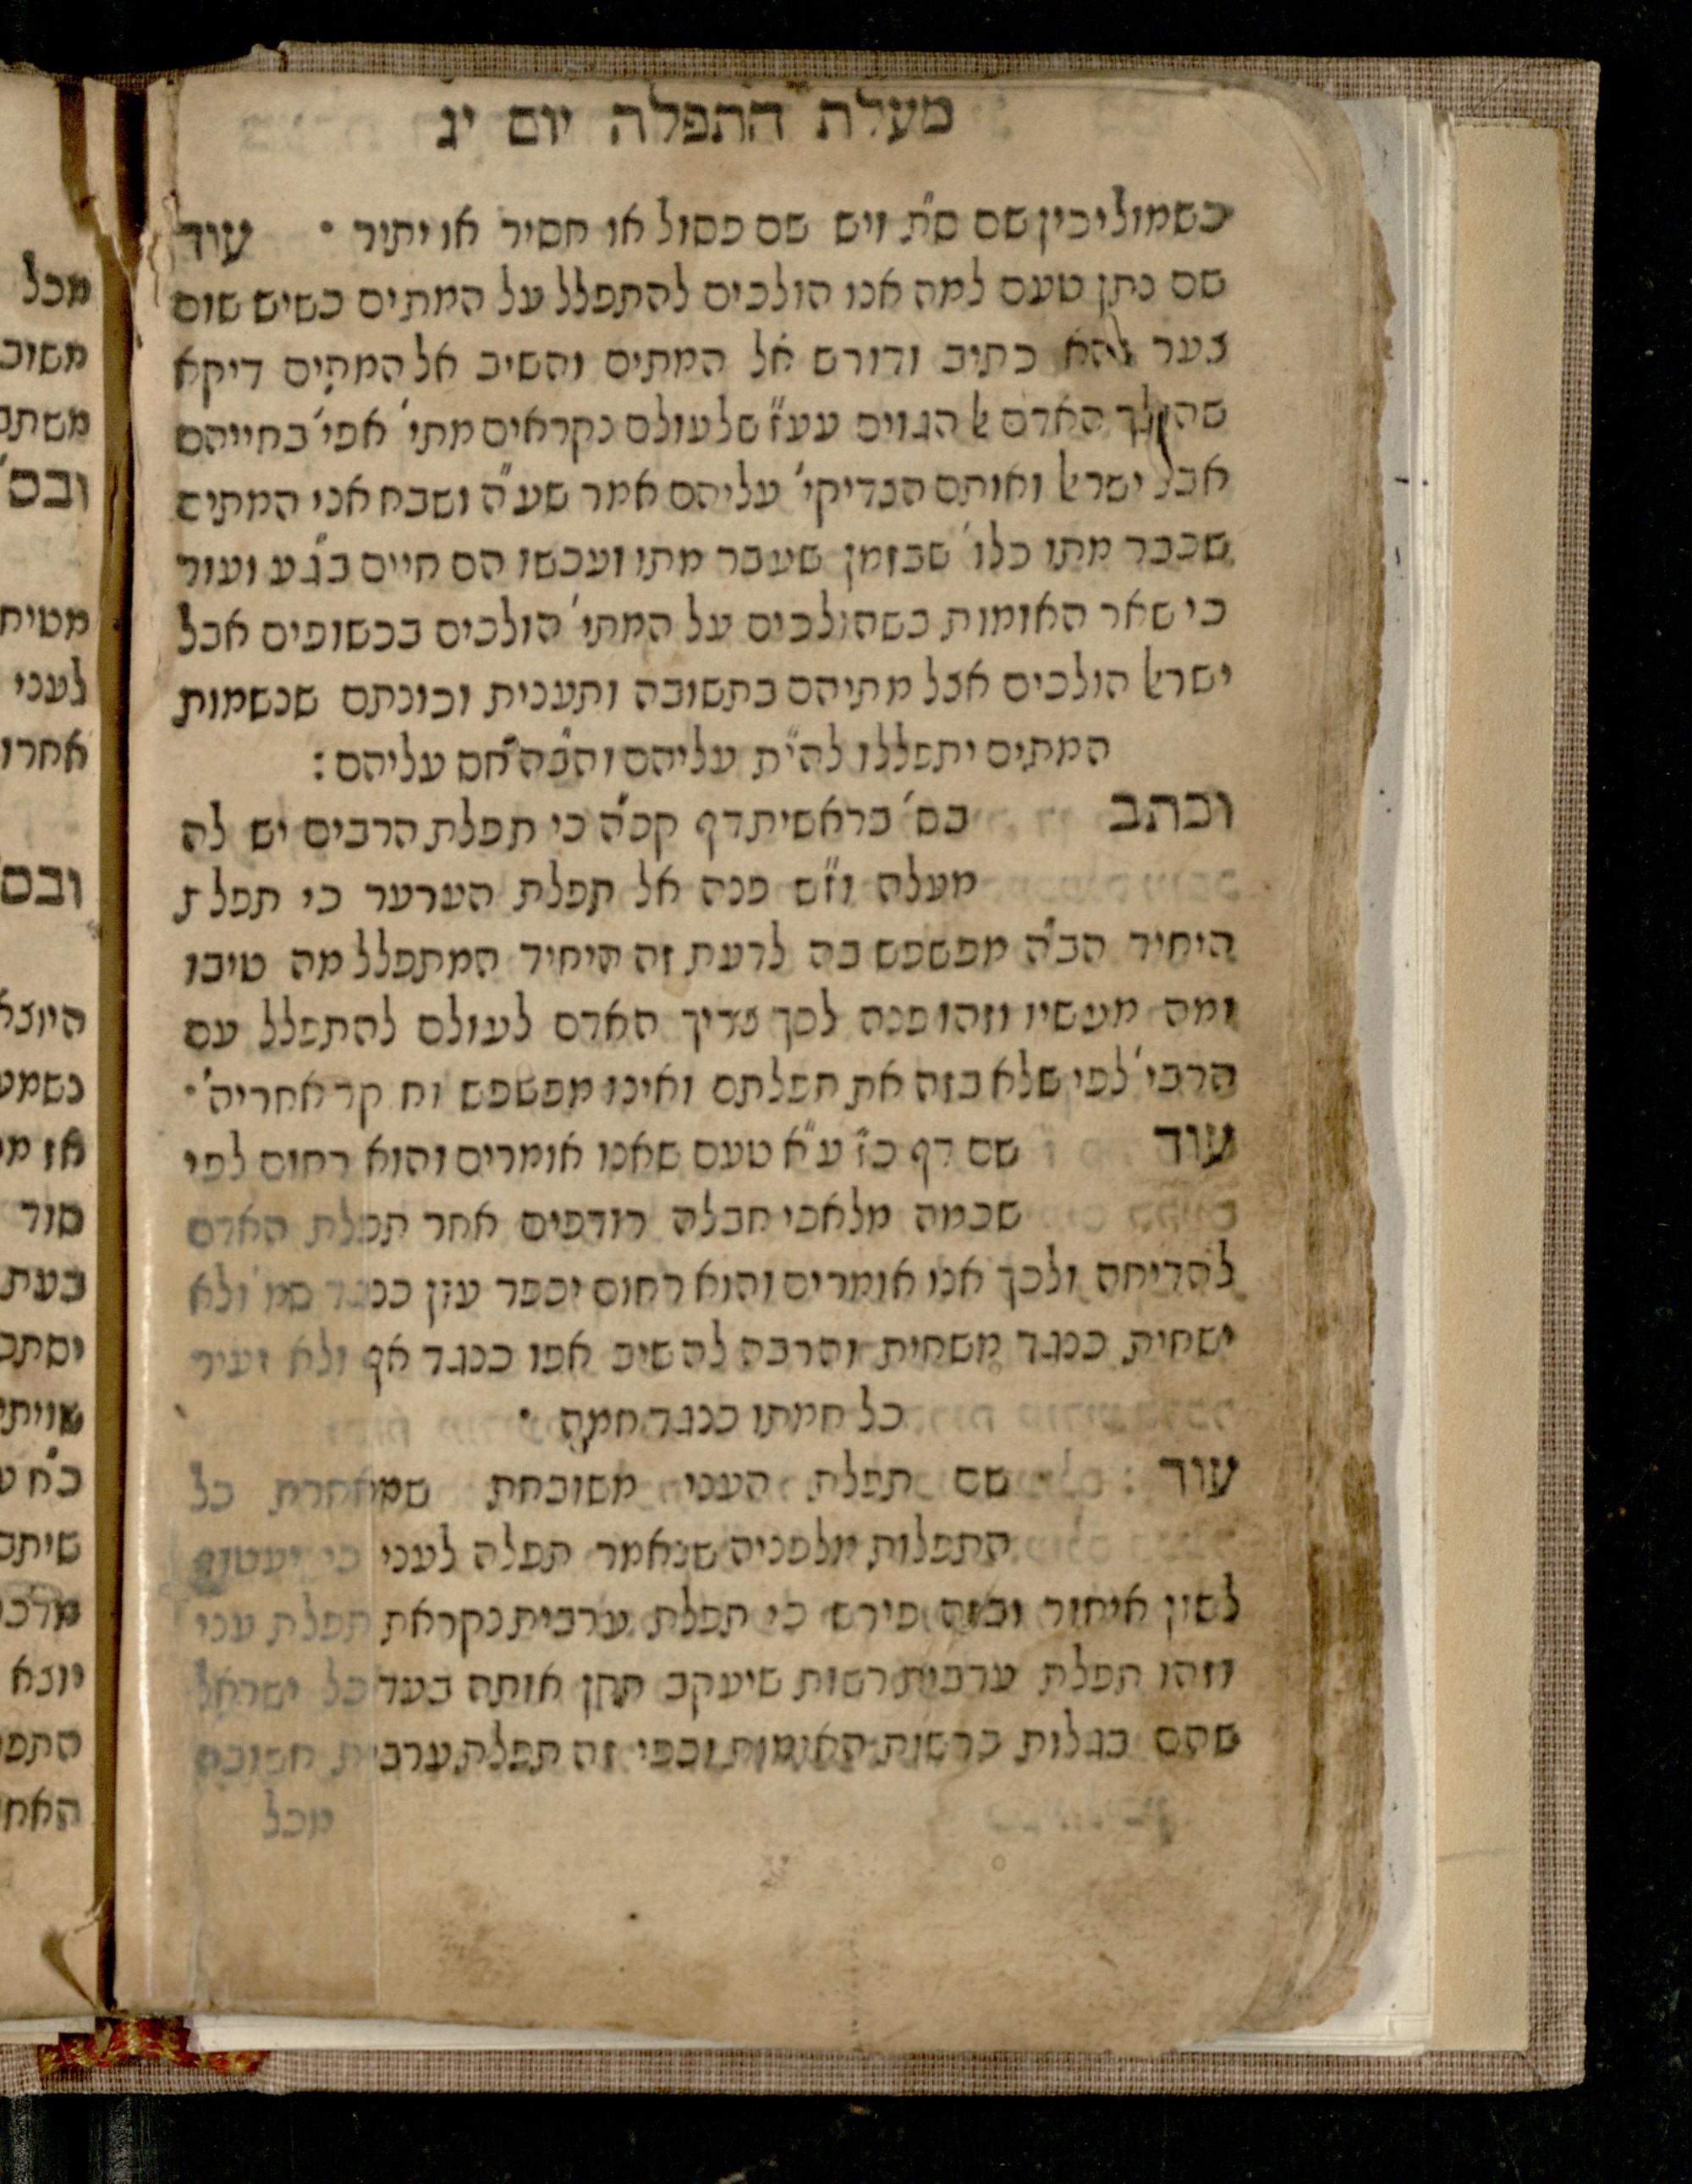 מעלת התפלה יום יג
כשמוליכין שם ס״ת ויש שם פסול או חסיר או יתיר • עוד
שם נתן טעם למה אנו הולכים להתפלל על המתים כשיש שום
צער והא כתיב ודורש אל המתים והשיב אל המתים דיקא
האדם הגוים עע״ז שלעולם נקראים מתי׳ אפי׳ בחייהם
אבל ישראל ואותם הצדיקי׳ עליהם אמר שע״ה ושבח אני המתים
שכבר מתו כלו׳ שבזמן שעבר מתו ועכשו הם חיים בג״ע ועוד
כי שאר האומות כשהולכים על המתי׳ הולכים בכשופים אבל
ישראל הולכים אצל מתיהם בתשובה ותענית וכונתם שנשמות
המתים יתפללו לה״ית עליהם והב״ה חס עליהם :
וכתב בס׳ בראשית דף קס״ה כי תפלת הרבים יש לה
מעלה וז״ש פנה אל תפלת הערער כי תפלת
היחיד הב״ה מפשפש בה לדעת זה היחיד המתפלל מה טיבו
ומה מעשיו וזהו פנה לכך צריך האדם לעולם להתפלל עם
הרבי׳ לפי שלא בזה את תפלתם ואינו מפשפש וח קר אחריה׳ •
עוד שם דף כ״ז ע״א טעם שאנו אומרים והוא רחום לפי
שכמה מלאכי חבלה רודפים אחר תפלת האדם
להדיחה ולכך אנו אומרים והוא רחום יכפר עון כנגד סמ׳ ולא
ישחית כנגד משחית והרבה להשיב אפו כנגד אף ולא יעיר
כל חמתו כנגד חמה •
עוד שם תפלת העני משובחת שמאחרת כל
התפלות מלפניה שנאמר תפלה לעני כי יעטוף
לשון איחור ובזה פירש כי תפלת ערבית נקראת תפלת עני
וזהו תפלת ערבית רשות שיעקב תקן אותה בעד כל ישראל
שהם בגלות ברשות האומות וכפי זה תפלת ערבית חשובה
מכל